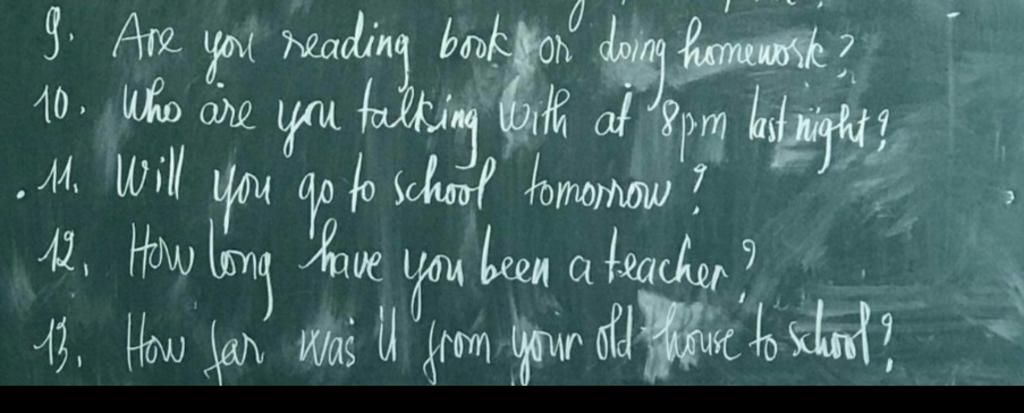 9. Are you reading book or doing homework?
10. Who are you talking with at 8pm last night?
11. Will you go to school tomorrow?
12. How long have you been a teacher?
13. How far was it from your old house to school?